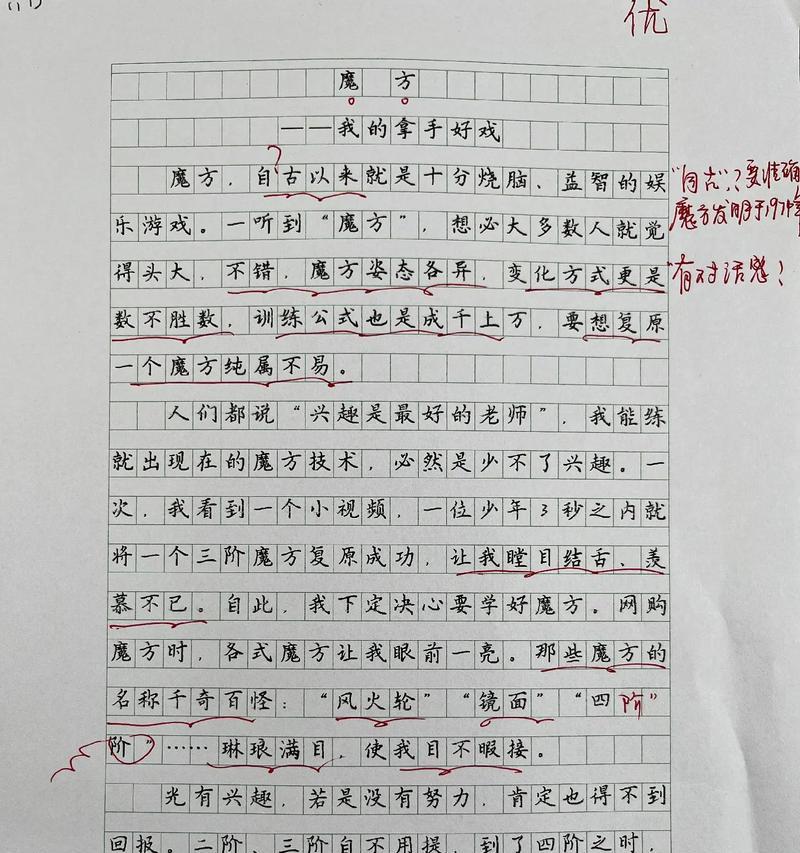 优
魔方
——我的拿手好戏
?
魔方，自古以来就是十分烧脑、益智的娱
"自古"？要准确
魔方发明于1974年
乐游戏。一听到“魔方”，想必大多数人就觉
得头大，不错，魔方姿态各异，变化方式更是
"有对话感？
数不胜数，训练公式也是成千上万，要想复原
一个魔方纯属不易。
人们都说“兴趣是最好的老师”，我能练
就出现在的魔方技术，必然是少不了兴趣。一
次，我看到一个小视频，一位少年3秒之内就
将一个三阶魔方复原成功，让我瞠目结舌、羡
慕不已。自此，我下定决心要学好魔方。网购
魔方时，各式魔方让我眼前一亮。那些魔方的
名称千奇百怪：“风火轮”“镜面”“四阶”
阶”……琳琅满目，使我目不暇接。
光有兴趣，若是没有努力，肯定也得不到
回报。二阶、三阶自不用提，到了四阶之时，